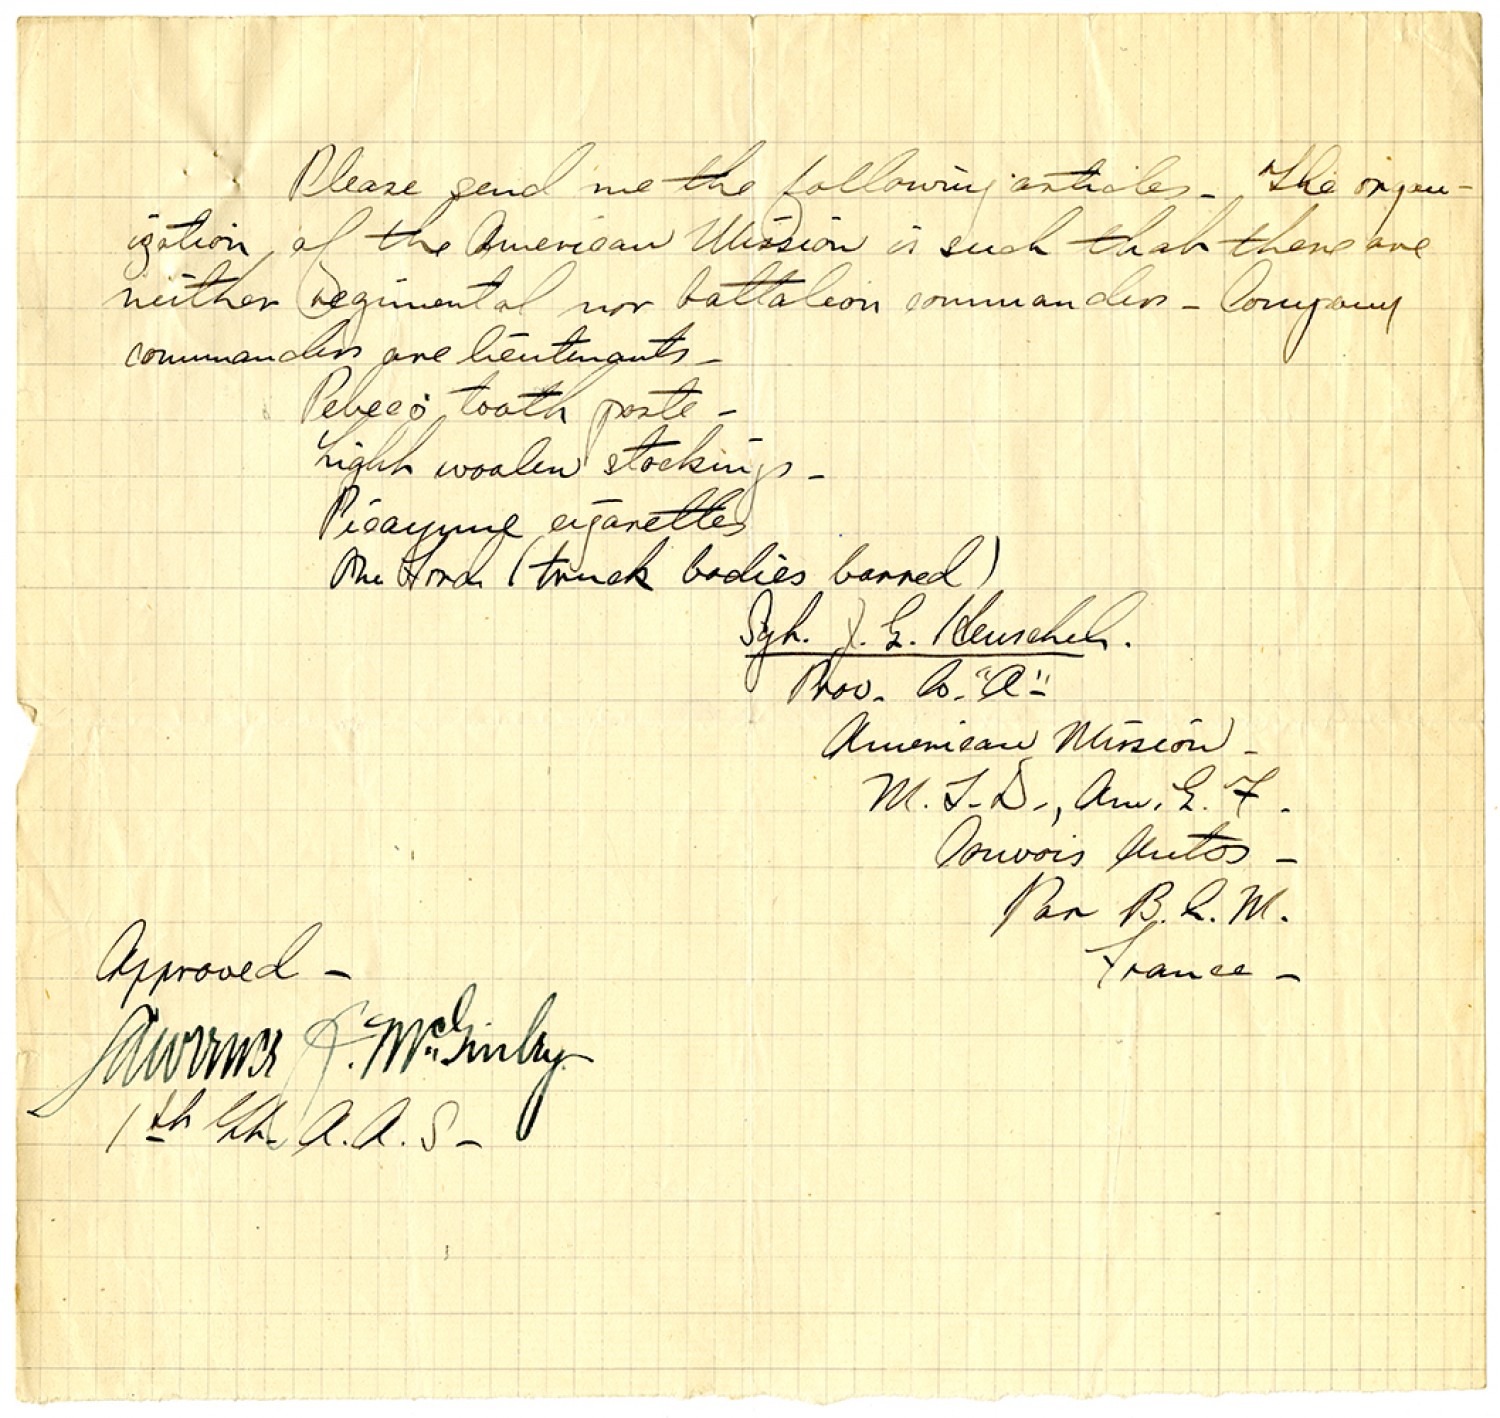 Please send me the following articles - The organ-
ization of the American Mission is such that there are
neither regimental nor battalion commanders - Company
commanders are lieutenants -
Pebeco tooth paste -
Light woolen stockings -
Picayune cigarettes
The Ford (truck bodies barred)
Sgt. J. G. Herschel.
Prov. Co. "A" -
American Mission -
M. T. D., Am. E. F.
Convois Autos -
Par B. C. M.
France -
Approved -
Lawrence McGinley
1st Lt. A. A. S -